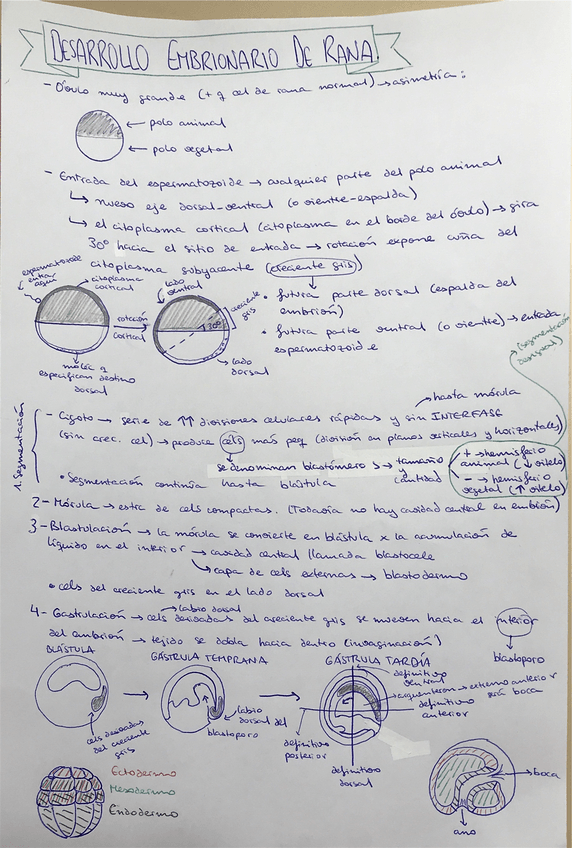 DESARROLLO EMBRIONARIO DE RANA
- Óvulo muy grande (+ q cel de rana normal) → asimetría:
← polo animal
← polo vegetal
- Entrada del espermatozoide → cualquier parte del polo animal
↳ nuevo eje dorsal-ventral (o vientre-espalda)
↳ el citoplasma cortical (citoplasma en el borde del óvulo) → gira
30º hacia el sitio de entrada → rotación expone cuña del
citoplasma subyacente (creciente gris)
espermatozoide
entra
aquí
citoplasma
cortical
rotación
cortical
lado
ventral
creciente
gris
30º
lado
dorsal
moléc q
especifican destino
dorsal
• futura parte dorsal (espalda del
embrión)
• futura parte ventral (o vientre) → entrada
espermatozoide
(segmentación
desigual)
1. Segmentación
→ hasta mórula
- Cigoto → serie de ↑↑ divisiones celulares rápidas y sin INTERFASE
(sin crec. cel) → produce cels más peq (división en planos verticales y horizontales)
se denominan blastómeros → tamaño y
cantidad
+ → hemisferio
animal (↓ vitelo)
- → hemisferio
vegetal (↑ vitelo)
• Segmentación continúa hasta blástula
2- Mórula → estra de cels compactas. (Todavía no hay cavidad central en embrión)
3- Blastulación → la mórula se convierte en blástula x la acumulación de
líquido en el interior → cavidad central llamada blastocele
↳ capa de cels externas → blastodermo
• cels del creciente gris en el lado dorsal
→ labio dorsal
4- Gastrulación → cels derivadas del creciente gris se mueven hacia el interior
del embrión → tejido se dobla hacia dentro (invaginación)
blastoporo
BLÁSTULA
GÁSTRULA TEMPRANA
GÁSTRULA TARDÍA
cels derivadas
del creciente
gris
labio
dorsal del
blastoporo
definitivo
ventral
arquenteron → extremo anterior
será boca
definitivo
anterior
definitivo
posterior
definitivo
dorsal
Ectodermo
Mesodermo
Endodermo
boca
ano